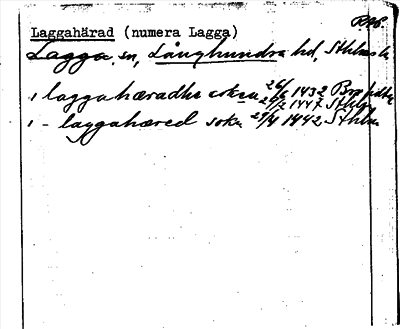 RAp.
Laggahärad (numera Lagga)
Lagga, sn, Långhundra hd, Sthlms l.
i laggahæradhs sokn 26/6 1432
29/2 1447 Sthlm
i - laggahæred sokn 29/4 1442 Sthlm